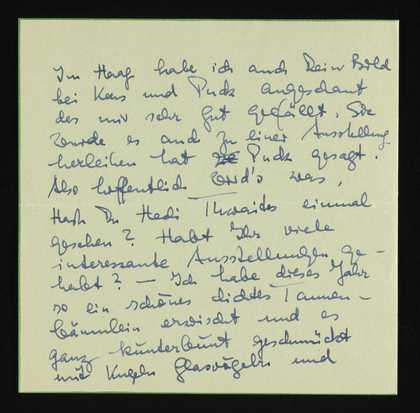 Im Haag habe ich auch Dein Bild
bei Kees und Puck angeschaut
das mir sehr gut gefällt. Sie
würde es auch zu einer Ausstellung
herleihen hat Puck gesagt.
Also hoffentlich wird's was,
Hast Du Hedi Thwaites einmal
gesehen? Habt Ihr viele
interessante Ausstellungen ge-
habt? — Ich habe dieses Jahr
so ein schönes dichtes Tannen-
bäumlein erwischt und es
ganz kunterbunt geschmückt
mit Kugeln Glasvögeln und